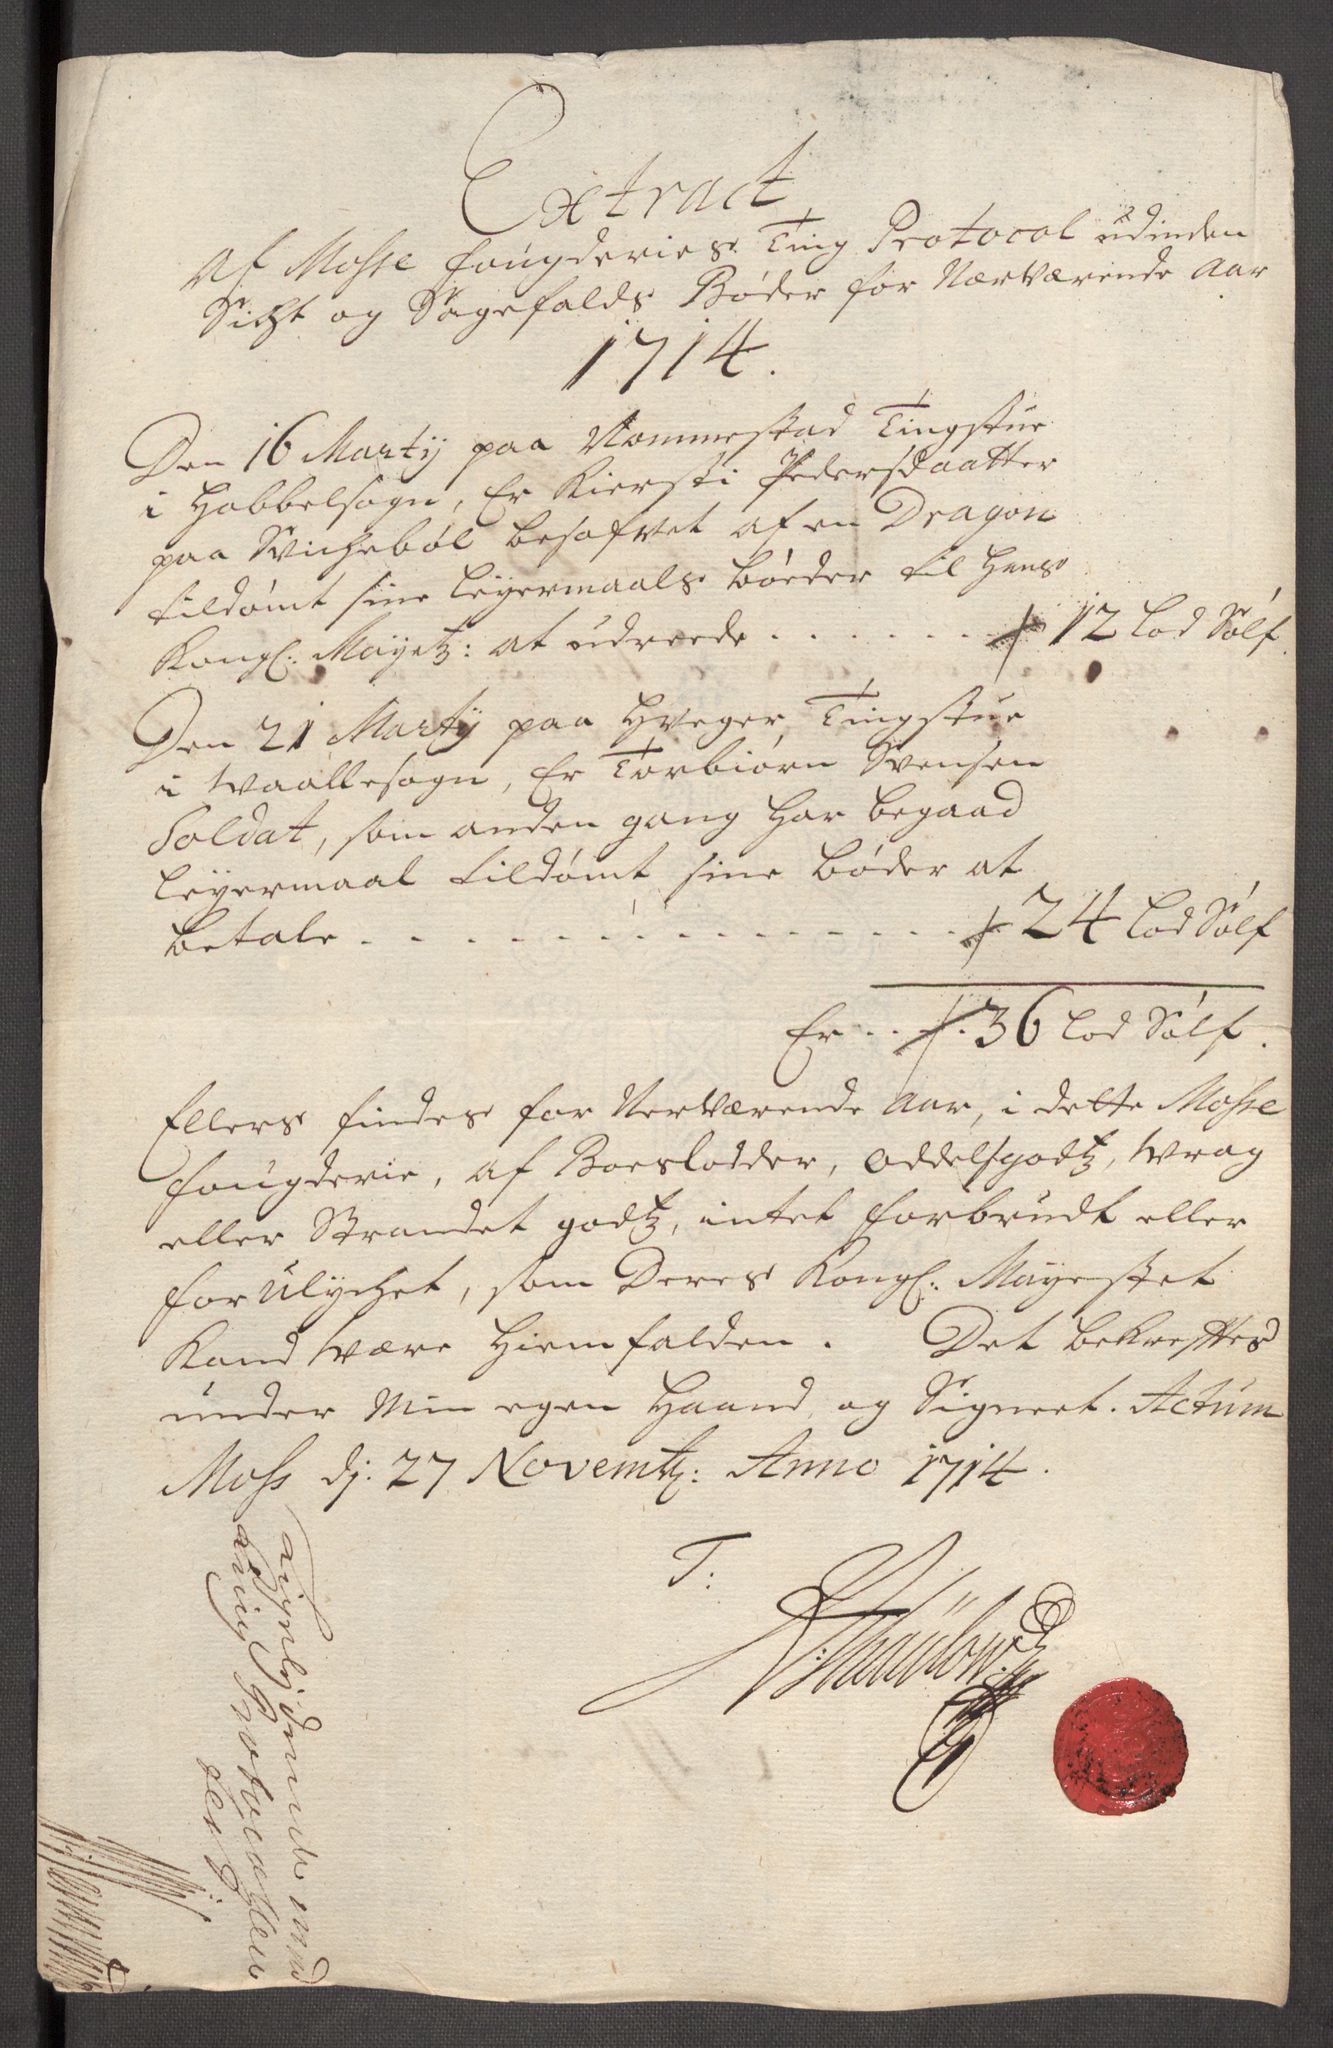 Extract
Af Mosse fougderies Ting Protocol udinden
Sicht og Sagefalds Bøder for Nærværende Aar
1714.
Den 16 Marty paa Nommestad Tingstue
i Hobbelsogn, Er Kiersti Pedersdaatter
paa Svichebøl besofvet af en Dragon
tildømt sine Leyermaals bøeder til Hans
Kongl: Mayetz: at udreede . . . . . . . 12 Lod Sølf.
Den 21 Marty paa Hveger Tingstue
i Waallesogn, Er Torbiørn Svensen
Soldat, som anden gang har begaad
Leyermaal tildømt sine bøder at
betale . . . . . . . . . . . . . . . 24 Lod Sølf
Er . . . 36 Lod Sølf.
Ellers findes for Nerværende Aar, i dette Mosse
fougderie, af Boeslodder, oddelsgodtz, Wrag
eller Strandet godtz, intet forbrudt eller
for ulychet, som Deres Kongl: Mayestet
Kand være hiemfalden. Det bekreftes
under Min egen Haand og Signeet. Actum
Moss dj: 27 Novemb: Anno 1714.
T: